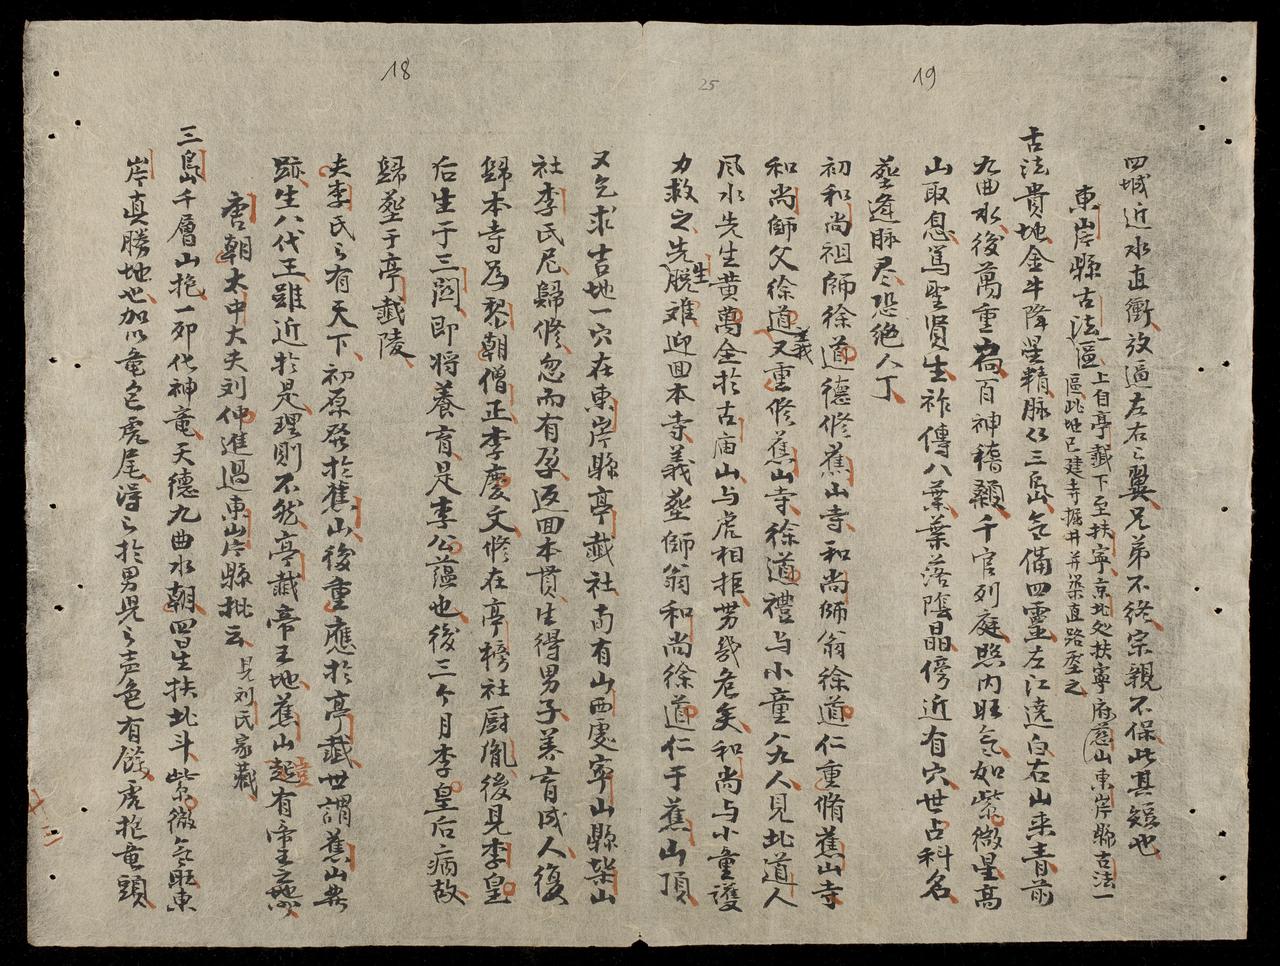 18
25
19
四城近水直衝放逼左右〻翼兄弟不终宗親不保此其短也
東岸縣古法區
上自亭㦸下至扶寧京北处扶寧府慈山東岸縣古法一
區此地已建寺掘井并築直路壓之
古法貴地金牛降星精脉從三岳氣俻四靈左江遶白右山来青前
九曲水後萬重崗百神稽顙千官列庭照内旺氣如紫微星高
山取息篤聖賢生祚傳八葉葉落陰晶傍近有穴世占科名
塟逢脉尽恐绝人丁
初和尚祖師徐道德修蕉山寺和尚師翁徐道仁重脩蕉山寺
和尚師父徐道義又重修蕉山寺徐道禮与小童八九人見北道人
风水先生黄萬全於古庙山与虎相拒势幾危矣和尚与小童護
力救之先生脱难迎回本寺義塟師翁和尚徐道仁于蕉山頂
又乞求吉地一穴在東岸縣亭㦸社南有山西處寧山縣柴山
社李氏尼歸修忽而有孕返回本貫生得男子养育成人復
歸本寺為黎朝僧正李慶文修在亭榜社厨胤後見李皇
后生于三閣即将養育是李公蕴也後三个月李皇后病故
歸塟于亭㦸陵
夫李氏之有天下初原發於蕉山後重應於亭㦸世謂蕉山无
跡生八代王雖近於是理則不然亭㦸帝王地蕉山豈有帝王無
唐朝太中大夫刘仲進過東岸縣批云
見刘氏家藏
三島山千層山抱一卯化神竜天德九曲水朝四畧生扶北斗紫微氣旺東
岸真勝地也加以竜包虎尾得之於男児之声色有餘虎抱竜頭